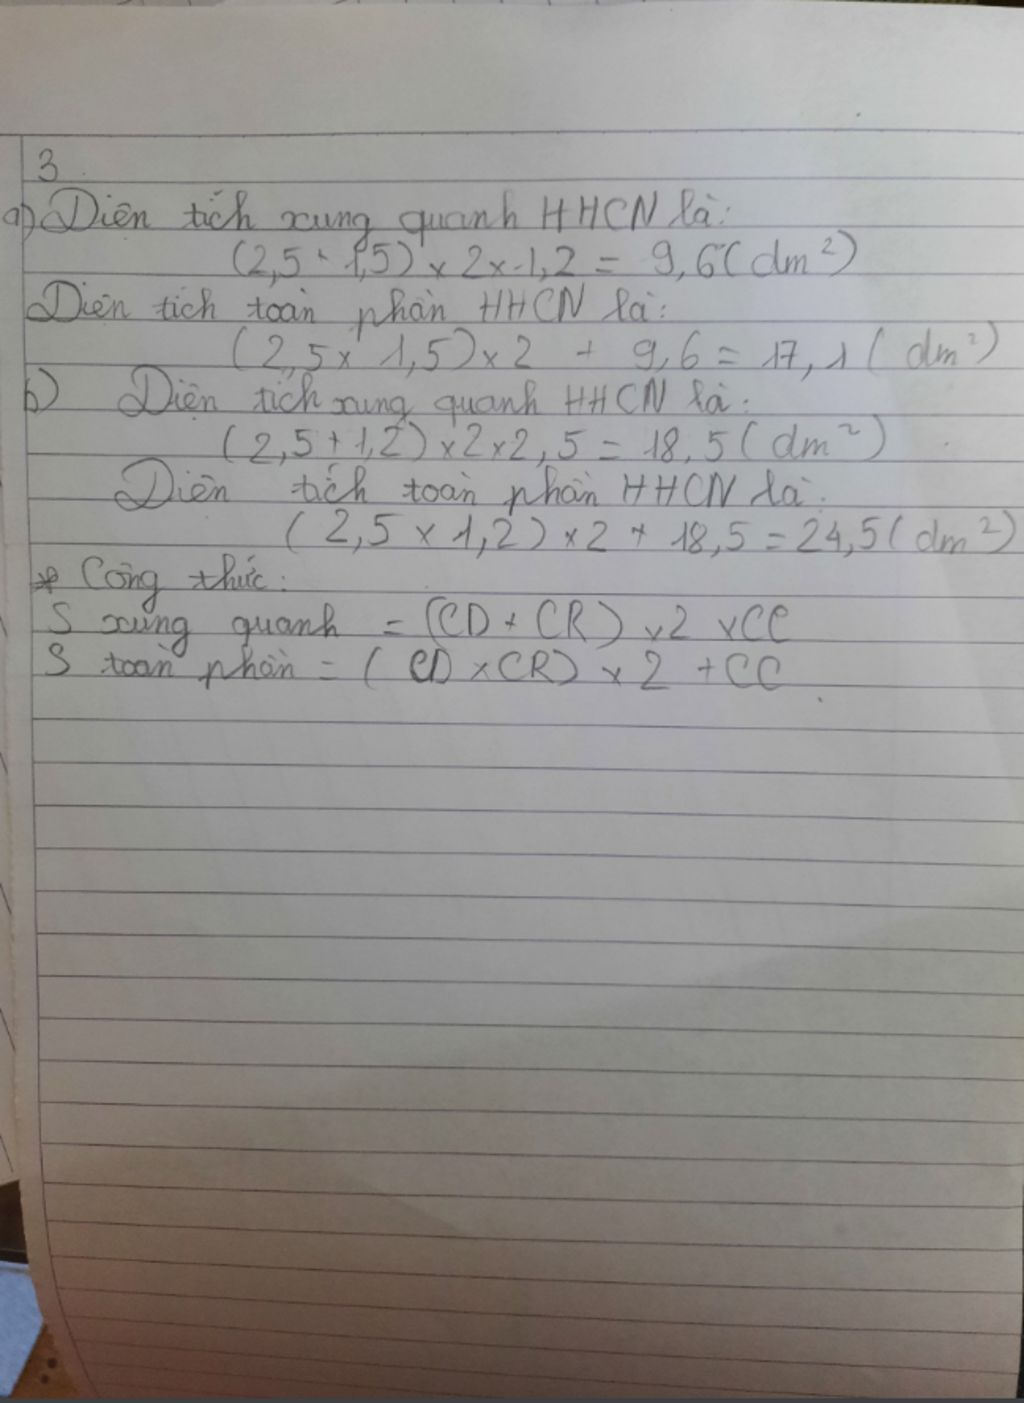 3
a) Diện tích xung quanh HHCN là:
(2,5 + 1,5) x 2 x 1,2 = 9,6 (dm²)
Diện tích toàn phần HHCN là:
(2,5 x 1,5) x 2 + 9,6 = 17,1 (dm²)
b) Diện tích xung quanh HHCN là:
(2,5 + 1,2) x 2 x 2,5 = 18,5 (dm²)
Diện tích toàn phần HHCN là:
(2,5 x 1,2) x 2 + 18,5 = 24,5 (dm²)
* Công thức:
S xung quanh = (CD + CR) x 2 x CC
S toàn phần = (CD x CR) x 2 + CC